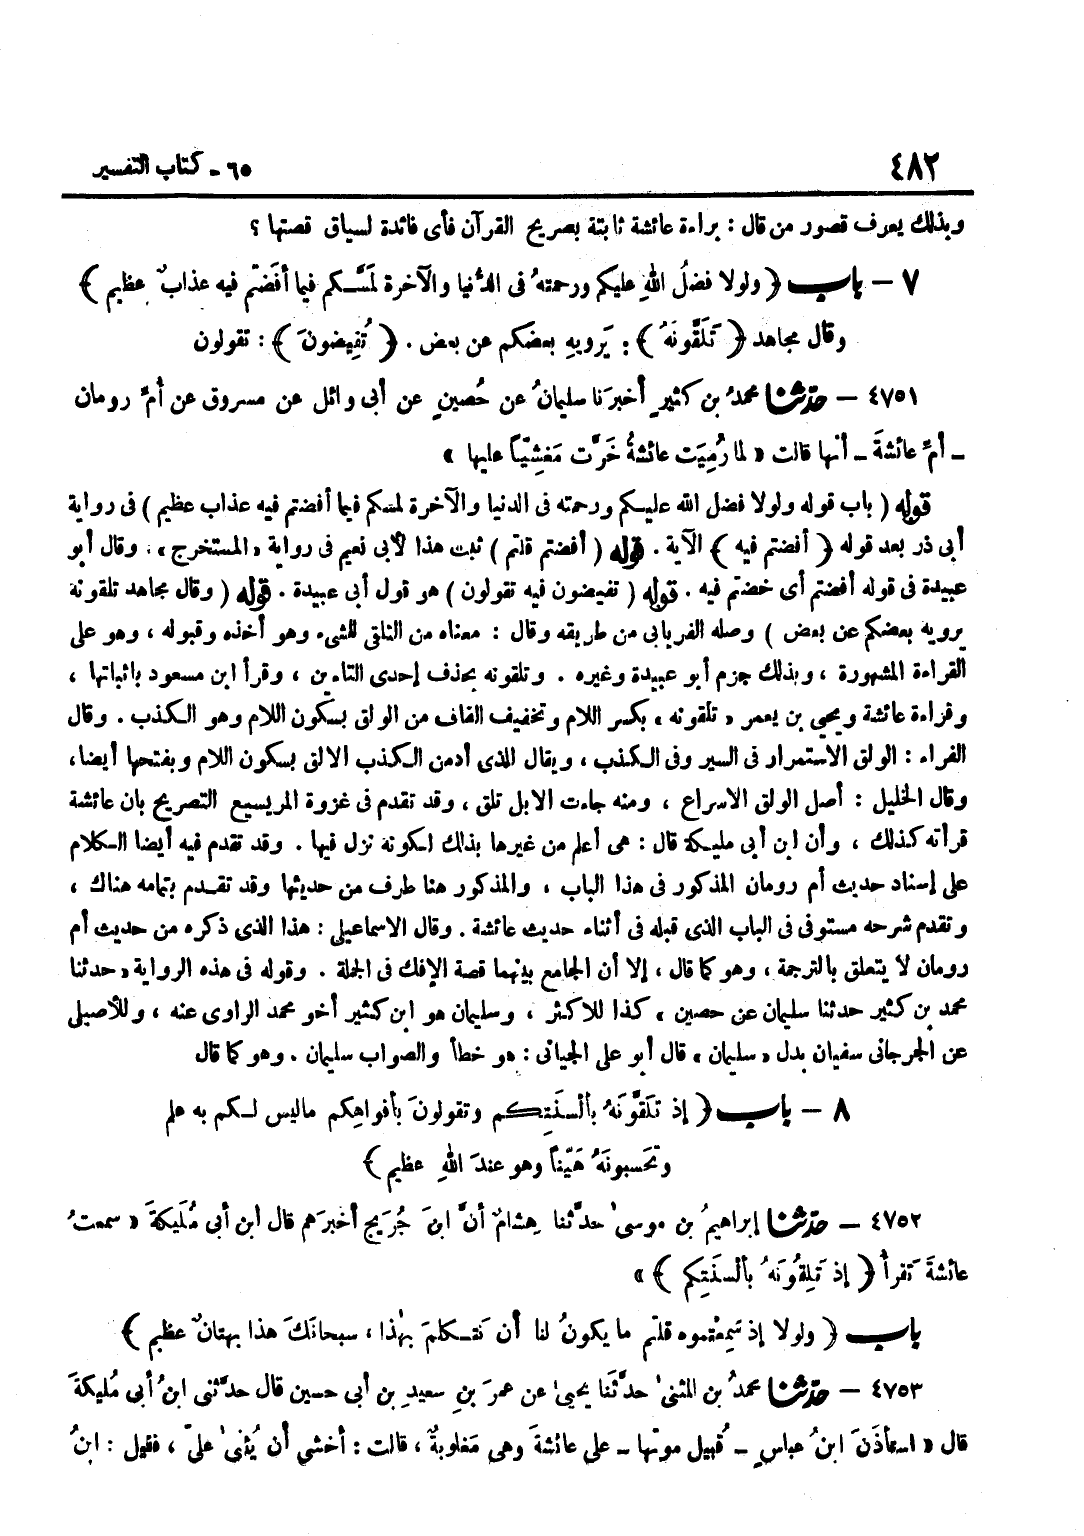 ٤٨٢
٦٥ - كتاب التفسير
وبذلك يعرف قصور من قال : براءة عائشة ثابتة بصريح القرآن فأى فائدة لسياق قصتها ؟
٧ - باب ﴿ ولولا فضلُ اللهِ عليكم ورحمتهُ فى الدُّنيا والآخرة لمَسَّكم فيما أفَضتم فيه عذابٌ عظيم ﴾
وقال مجاهد ﴿ تَلَقَّونَهُ ﴾ : يَرويهِ بعضكم عن بعض . ﴿ تُفِيضونَ ﴾ : تقولون
٤٧٥١ - حدّثنا محمدُ بن كثيرٍ أخبرَنا سليمانُ عن حُصينٍ عن أبى وائل عن مسروق عن أُمِّ رومان
ـ أمِّ عائشةَ ـ أنها قالت « لما رُمِيَت عائشةُ خَرَّت مَغشِيّاً عليها »
قوله ( باب قوله ولولا فضل الله عليكم ورحمته فى الدنيا والآخرة لمسكم فيما أفضتم فيه عذاب عظيم ) فى رواية
أبى ذر بعد قوله ﴿ أفضتم فيه ﴾ الآية . قوله ( أفضتم قلتم ) ثبت هذا لأبى نعيم فى رواية « المستخرج » . وقال أبو
عبيدة فى قوله أفضتم أى خضتم فيه . قوله ( تفيضون فيه تقولون ) هو قول أبى عبيدة . قوله ( وقال مجاهد تلقونه
يرويه بعضكم عن بعض ) وصله الفريابى من طريقه وقال : معناه من التلقى للشىء وهو أخذه وقبوله ، وهو على
القراءة المشهورة ، وبذلك جزم أبو عبيدة وغيره . وتلقونه بحذف إحدى التاءين ، وقرأ ابن مسعود باثباتها ،
وقراءة عائشة ويحيى بن يعمر « تلقونه » بكسر اللام وتخفيف القاف من الولق بسكون اللام وهو الكذب . وقال
الفراء : الولق الاستمرار فى السير وفى الكذب ، ويقال للذى أدمن الكذب الالق بسكون اللام وبفتحها أيضا ،
وقال الخليل : أصل الولق الاسراع ، ومنه جاءت الابل تلق ، وقد تقدم فى غزوة المريسيع التصريح بان عائشة
قرأته كذلك ، وأن ابن أبى مليكة قال : هى أعلم من غيرها بذلك لكونه نزل فيها . وقد تقدم فيه أيضا الكلام
على إسناد حديث أم رومان المذكور فى هذا الباب ، والمذكور هنا طرف من حديثها وقد تقدم بتمامه هناك ،
وتقدم شرحه مستوفى فى الباب الذى قبله فى أثناء حديث عائشة . وقال الاسماعيلى : هذا الذى ذكره من حديث أم
رومان لا يتعلق بالترجمة ، وهو كما قال ، إلا أن الجامع بينهما قصة الإفك فى الجملة . وقوله فى هذه الرواية « حدثنا
محمد بن كثير حدثنا سليمان عن حصين » كذا للاكثر ، وسليمان هو ابن كثير أخو محمد الراوى عنه ، وللأصيلى
عن الجرجانى سفيان بدل « سليمان » قال أبو على الجيانى : هو خطأ والصواب سليمان . وهو كما قال
٨ - باب ﴿ إذ تلَقَّوْنَهُ بألسنَتِكم وتقولونَ بأفواهِكم ماليس لكم به علم
وتَحسبونهُ هَيِّناً وهو عندَ اللهِ عظيم ﴾
٤٧٥٢ - حدّثنا إبراهيمُ بن موسىٰ حدَّثنا هِشامٌ أنَّ ابنَ جُرَيجٍ أخبرَهم قال ابن أبى مُلَيكةَ « سمعتُ
عائشةَ تَقرأُ ﴿ إذ تَلِقُونَهُ بألسنَتِكم ﴾ »
باب ﴿ ولولا إذ سَمِعْتموه قلتم ما يكونُ لنا أن نَتكلمَ بهٰذا ، سبحانَكَ هذا بهتانٌ عظيم ﴾
٤٧٥٣ - حدّثنا محمدُ بن المثنىٰ حدَّثَنا يحيىٰ عن عمرَ بنِ سعيدِ بن أبى حسين قال حدَّثنى ابنُ أبى مُليكةَ
قال « استأذَنَ ابنُ عباسٍ ـ قُبيل موتها ـ على عائشةَ وهى مَغلوبةٌ ، قالت : أخشي أن يُثنىٰ علىّ ، فقيل : ابنُ